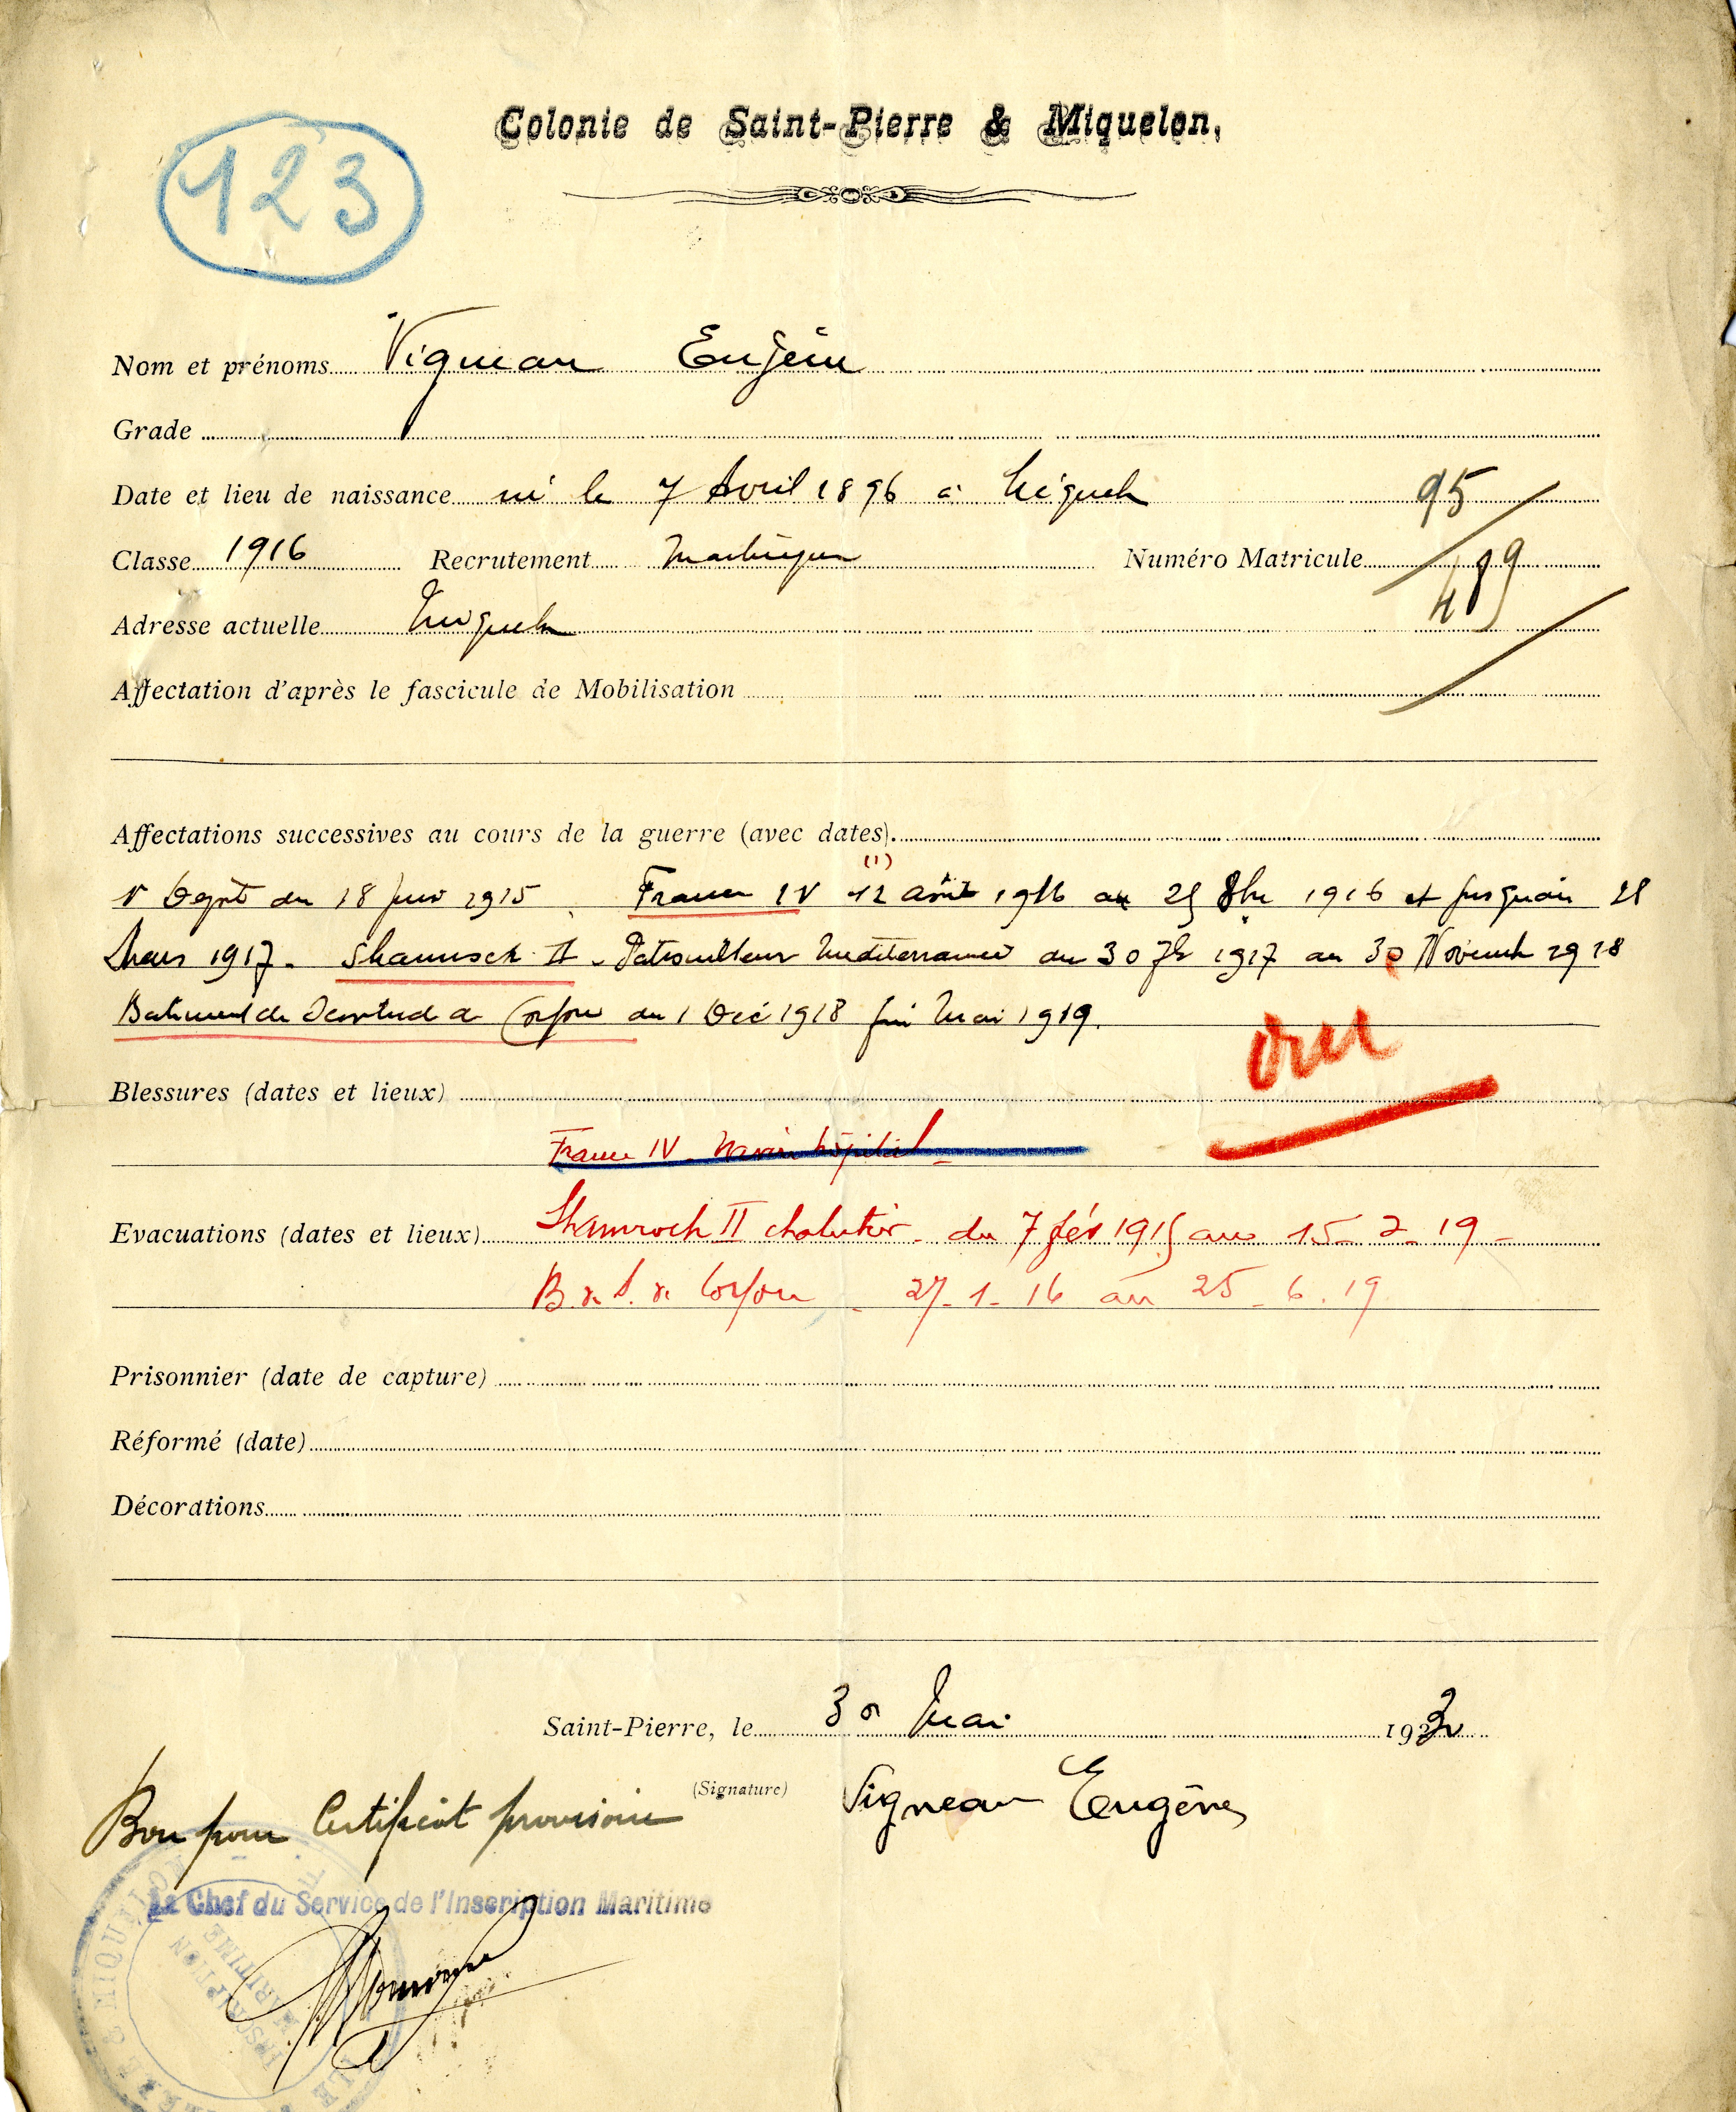 Colonie de Saint-Pierre & Miquelon,
123
Nom et prénoms Vigneau Eugène
Grade
Date et lieu de naissance né le 7 Avril 1896 à Miquelon
95
Classe 1916 Recrutement Martinique Numéro Matricule 489
Adresse actuelle Miquelon
Affectation d'après le fascicule de Mobilisation
Affectations successives au cours de la guerre (avec dates).
(1)
Dépôt du 18 1915 France IV 12 août 1916 au 25 8bre 1916 et jusqu'au 28
Mars 1917. Shamrock II - Patrouilleur Méditerranée du 30 7bre 1917 au 30 Novemb 1918
Batiment de Servitude à Corfou du 1 Déc 1918 fin Mai 1919.
oui
Blessures (dates et lieux)
France IV - Navire hôpital -
Evacuations (dates et lieux) Shamrock II chalutier - du 7 fév 191 au 15 - 2 - 19 -
B. de S. de Corfou - 27 - 1 - 16 au 25 - 6 . 19
Prisonnier (date de capture)
Réformé (date)
Décorations
Saint-Pierre, le 30 Mai 192
(Signature) Vigneau Eugène
Bon pour Certificat provisoire
Le Chef du Service de l'Inscription Maritime
INSCRIPTION
MARITIME
& MIQUELON